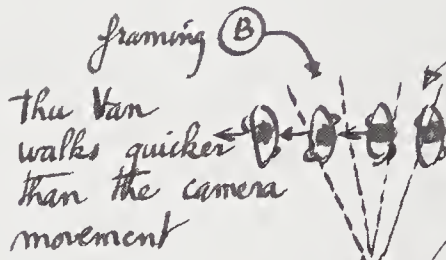 framing B
thu Van
walks quicker
than the camera
movement